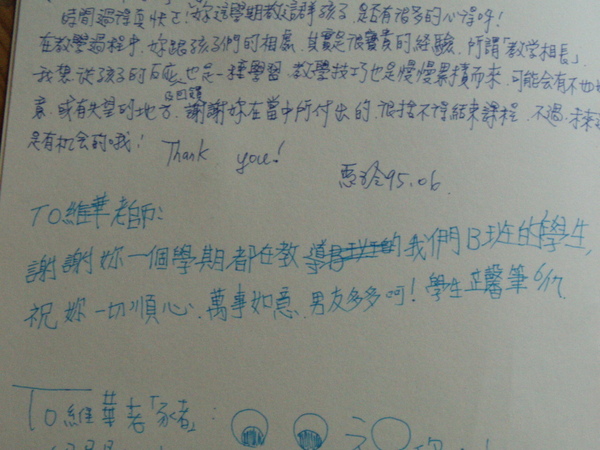 時間過得真快!妳這學期教這群孩子,是否有很多的心得呀!
在教學過程中,妳跟孩子們的相處,其實是很寶貴的經驗,所謂「教学相長」,
我想從孩子的反應及回饋也是一種學習,教學技巧也是慢慢累積而來,可能会有不如
意,或有失望的地方,謝謝妳在當中所付出的,很捨不得結束課程,不過,未來
是有机会的哦! Thank you!
惠玲95.06.
TO維華老師:
謝謝妳一個學期都在教導我們B班的學生,
祝妳一切順心、萬事如意、男友多多呵!學生芷馨筆 6/17
To 維華老「豕者」: